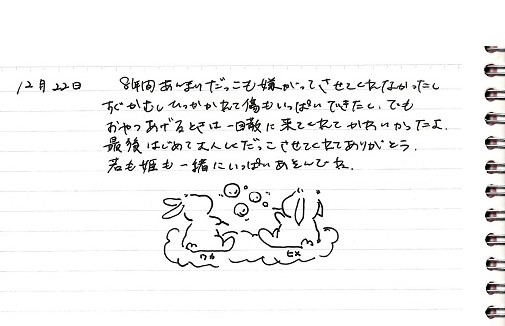 12月22日 8年間あんまりだっこも嫌がってさせてくれなかったし
すぐかむしひっかかれて傷もいっぱいできたし、でも
おやつあげるときは一目散に来てくれてかわいかったよ。
最後はじめて大人しくだっこさせてくれてありがとう。
若も姫も一緒にいっぱいあそんでね。
ワカ ヒメ